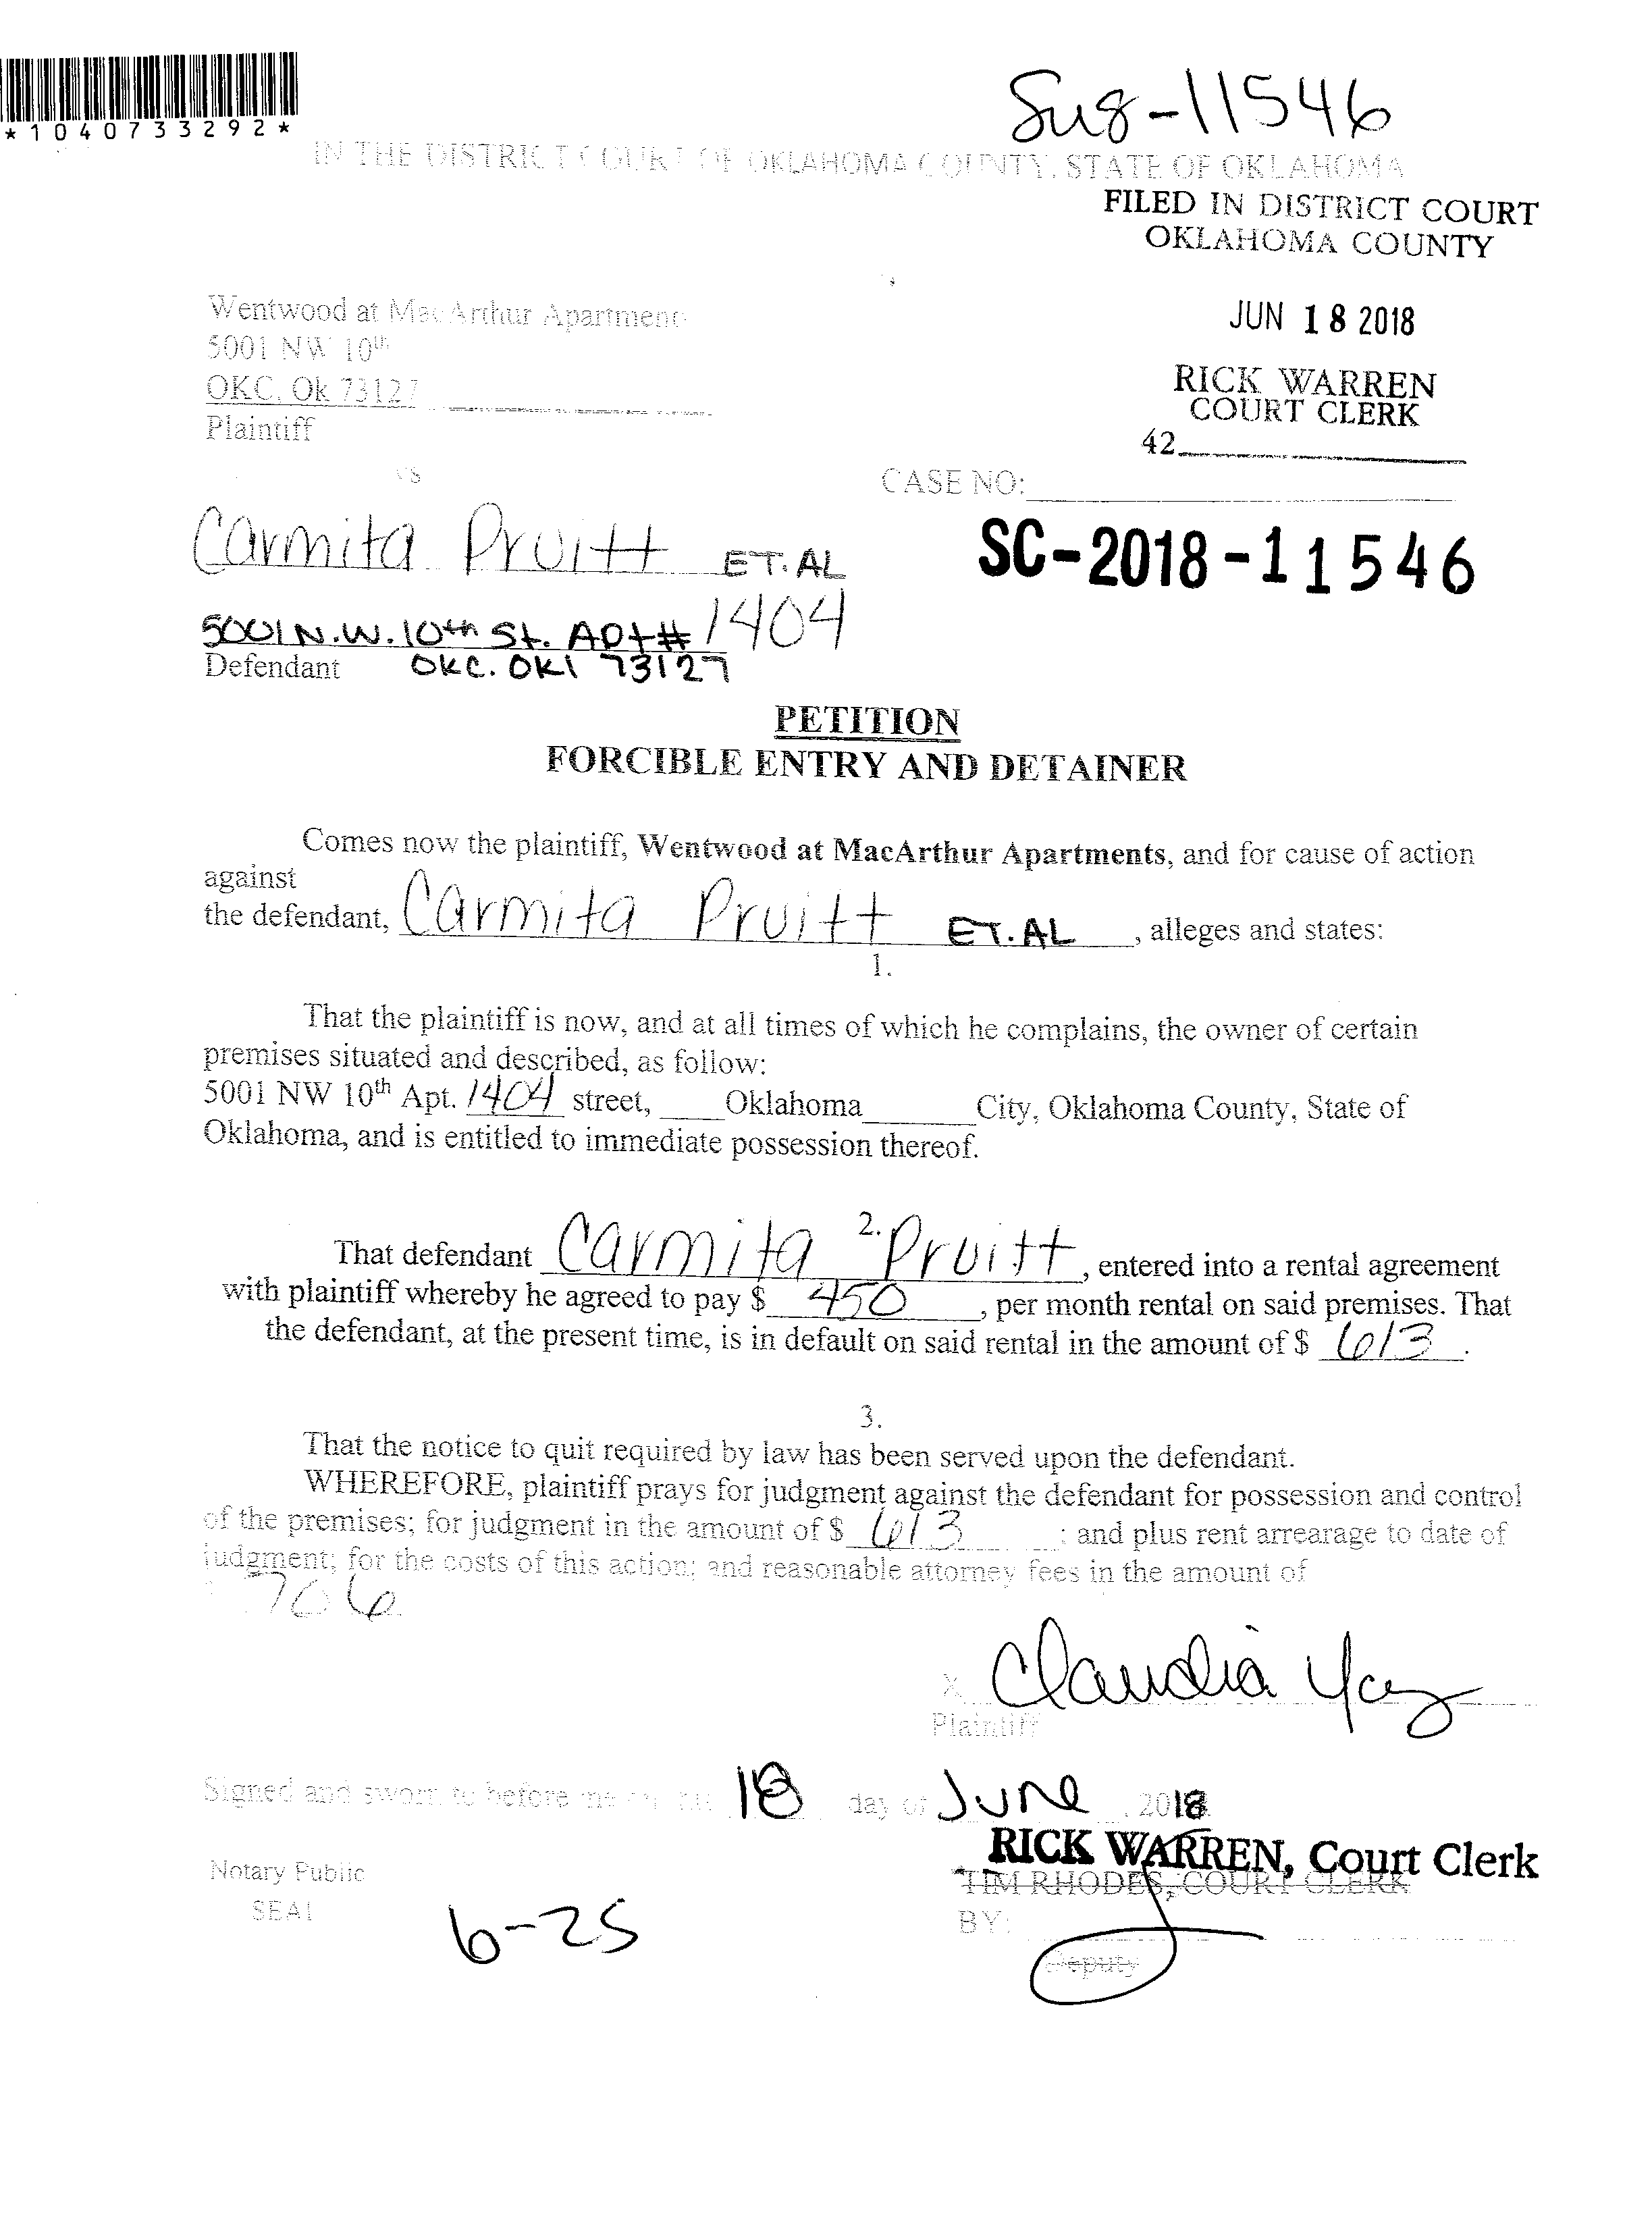 *1040733292*
IN THE DISTRICT COURT OF OKLAHOMA COUNTY, STATE OF OKLAHOMA
FILED IN DISTRICT COURT
OKLAHOMA COUNTY
JUN 18 2018
RICK WARREN
COURT CLERK
42
Wentwood at MacArthur Apartments
5001 NW 10th
OKC, Ok 73127
Plaintiff
vs
CASE NO:
SC-2018-11546
Carmita Pruitt ET.AL
5001 N.W. 10th St. Apt# 1404
Defendant OKC. OKl 73127
PETITION
FORCIBLE ENTRY AND DETAINER
Comes now the plaintiff, Wentwood at MacArthur Apartments, and for cause of action
against
the defendant, Carmita Pruitt ET.AL, alleges and states:
1.
That the plaintiff is now, and at all times of which he complains, the owner of certain
premises situated and described, as follow:
5001 NW 10th Apt. 1404 street, Oklahoma City, Oklahoma County, State of
Oklahoma, and is entitled to immediate possession thereof.
2.
That defendant Carmita Pruitt, entered into a rental agreement
with plaintiff whereby he agreed to pay $ 450, per month rental on said premises. That
the defendant, at the present time, is in default on said rental in the amount of $ 613.
3.
That the notice to quit required by law has been served upon the defendant.
WHEREFORE, plaintiff prays for judgment against the defendant for possession and control
of the premises; for judgment in the amount of $ 613 ; and plus rent arrearage to date of
judgment; for the costs of this action; and reasonable attorney fees in the amount of
706
x Claudia
Plaintiff
Signed and sworn to before me on this 18 day of June, 2018
RICK WARREN, Court Clerk
TIM RHODES, COURT CLERK
Notary Public
SEAL
BY:
Deputy
6-25